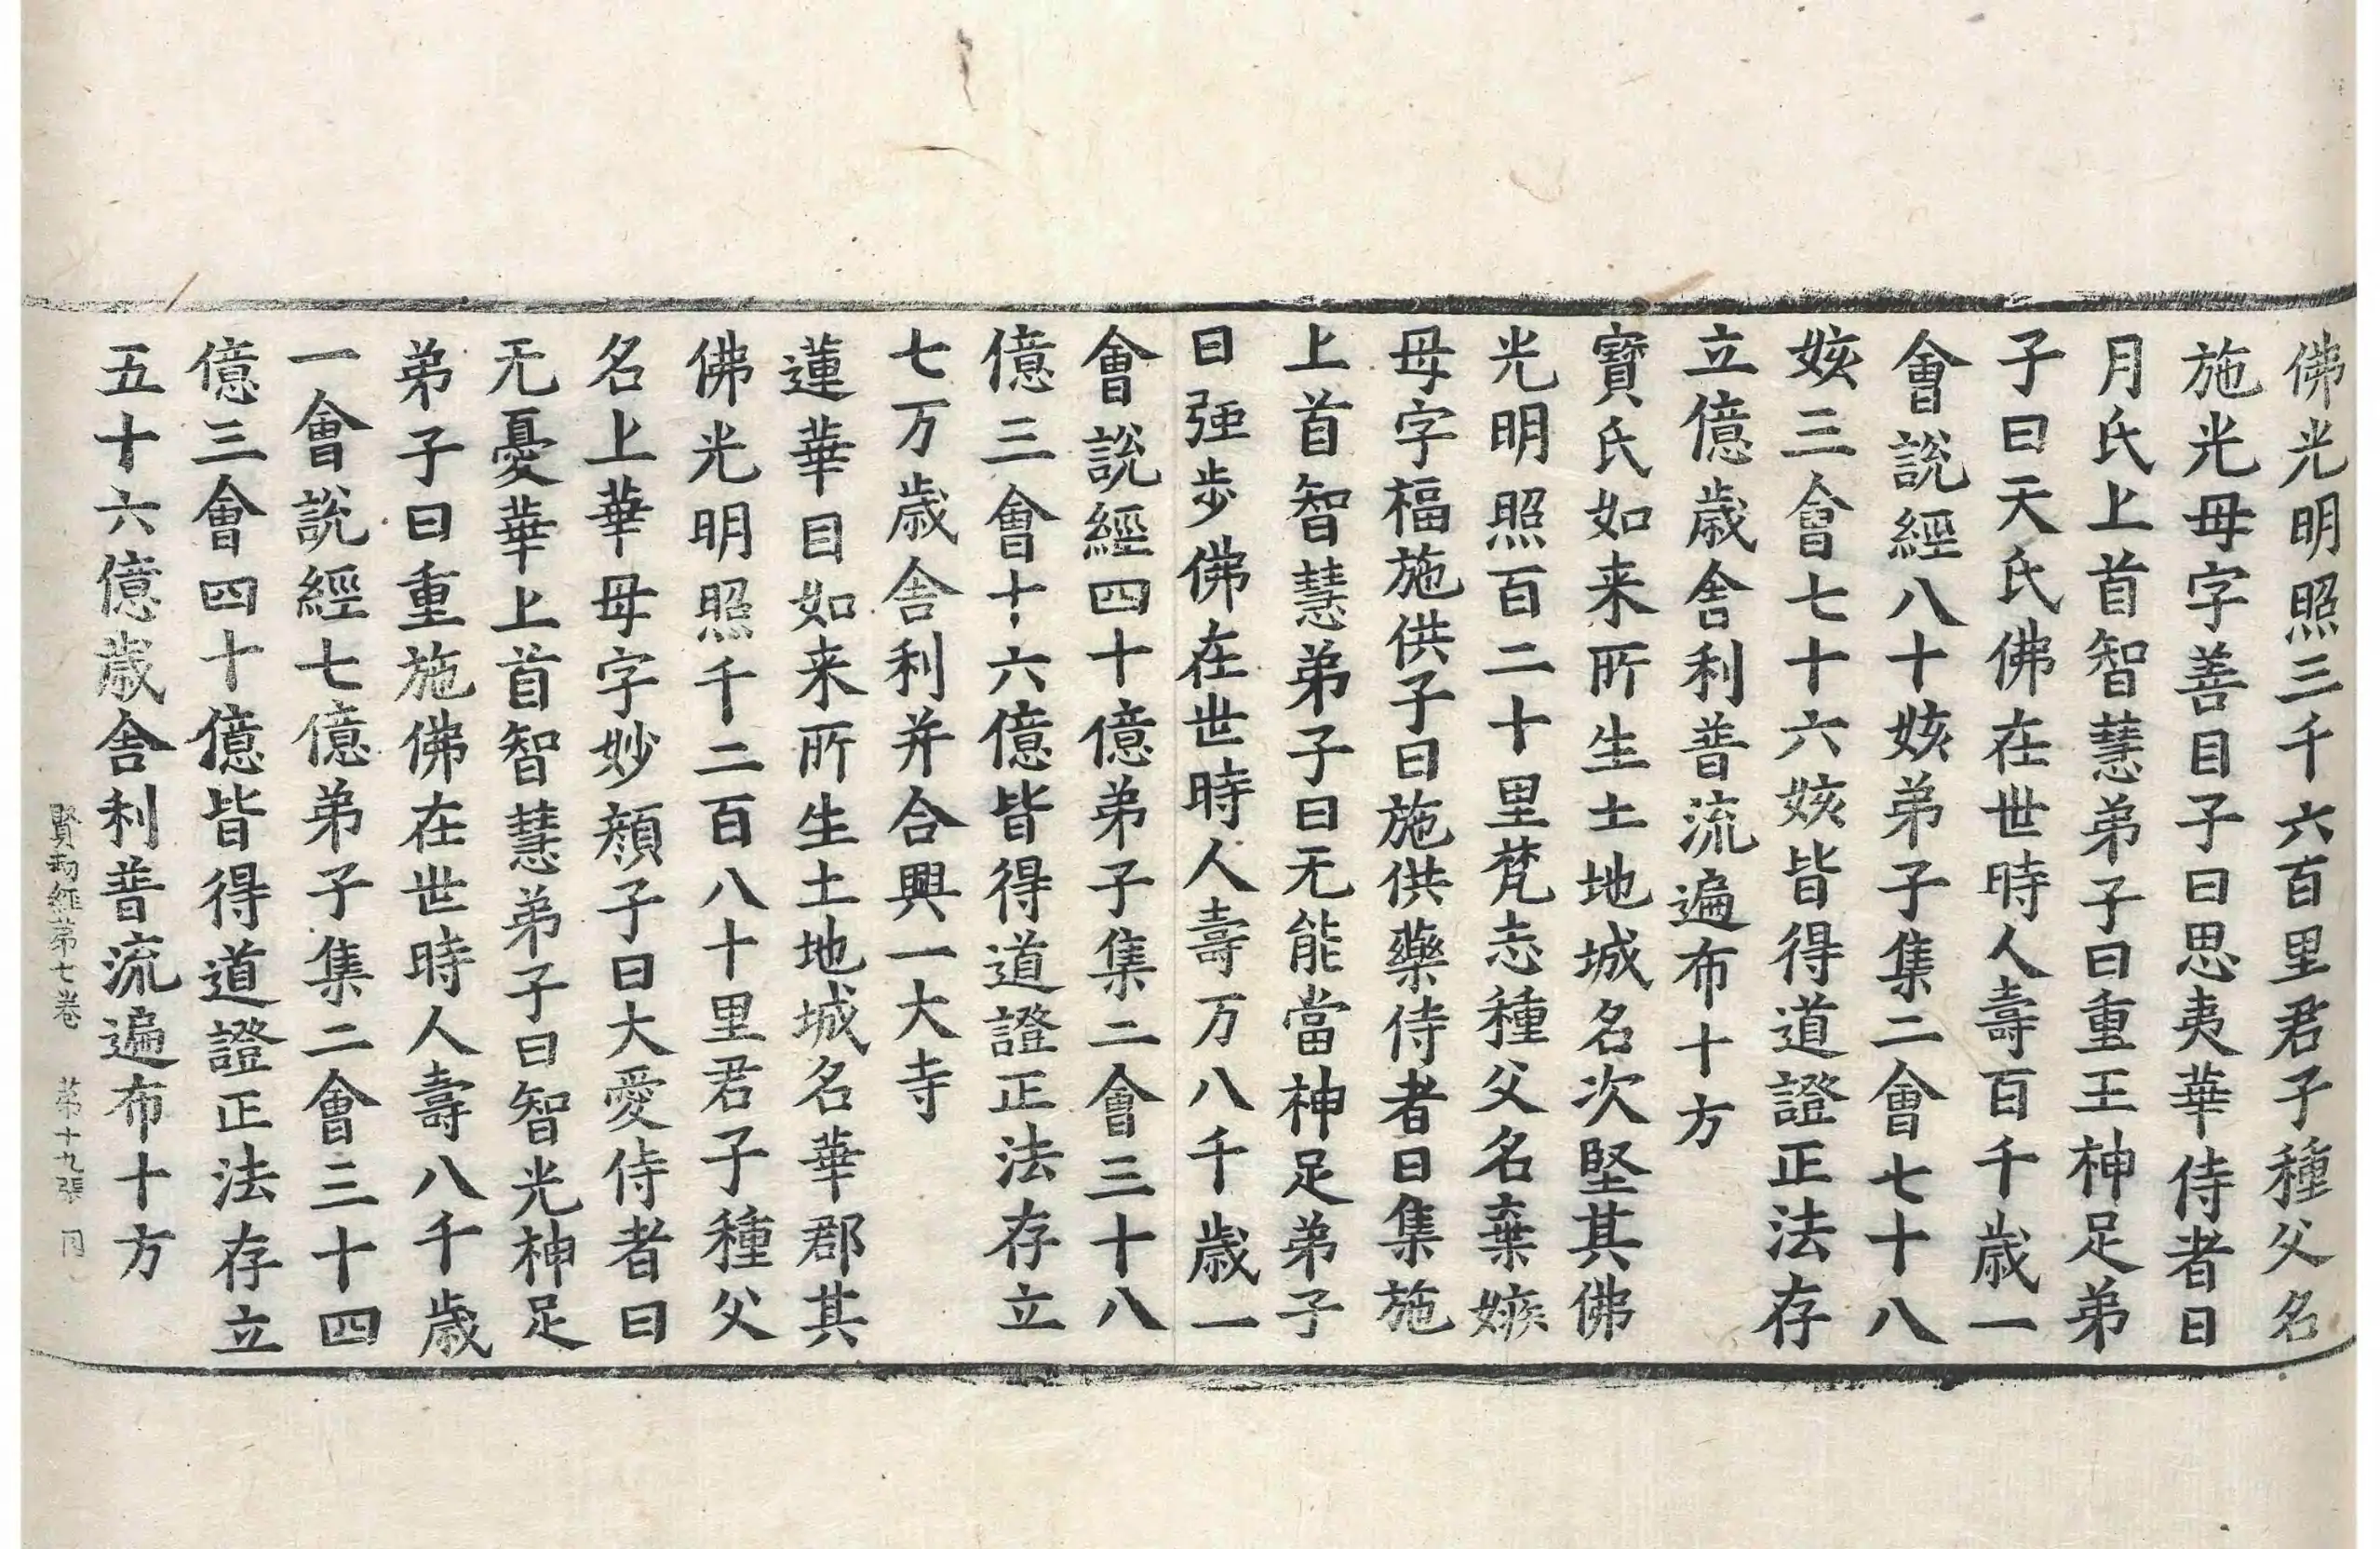 佛光明照三千六百里君子種父名
施光母字善目子曰思夷華侍者曰
月氏上首智慧弟子曰重王神足弟
子曰天氏佛在世時人壽百千歲一
會說經八十姟弟子集二會七十八
姟三會七十六姟皆得道證正法存
立億歲舍利普流遍布十方
寶氏如来所生土地城名次堅其佛
光明照百二十里梵志種父名棄嫉
母字福施供子曰施供藥侍者曰集施
上首智慧弟子曰无能當神足弟子
曰强步佛在世時人壽万八千歲一
會說經四十億弟子集二會三十八
億三會十六億皆得道證正法存立
七万歲舍利并合興一大寺
蓮華目如来所生土地城名華郡其
佛光明照千二百八十里君子種父
名上華母字妙顏子曰大愛侍者曰
无憂華上首智慧弟子曰智光神足
弟子曰重施佛在世時人壽八千歲
一會說經七億弟子集二會三十四
億三會四十億皆得道證正法存立
五十六億歲舍利普流遍布十方
賢劫經第七卷 第十九張